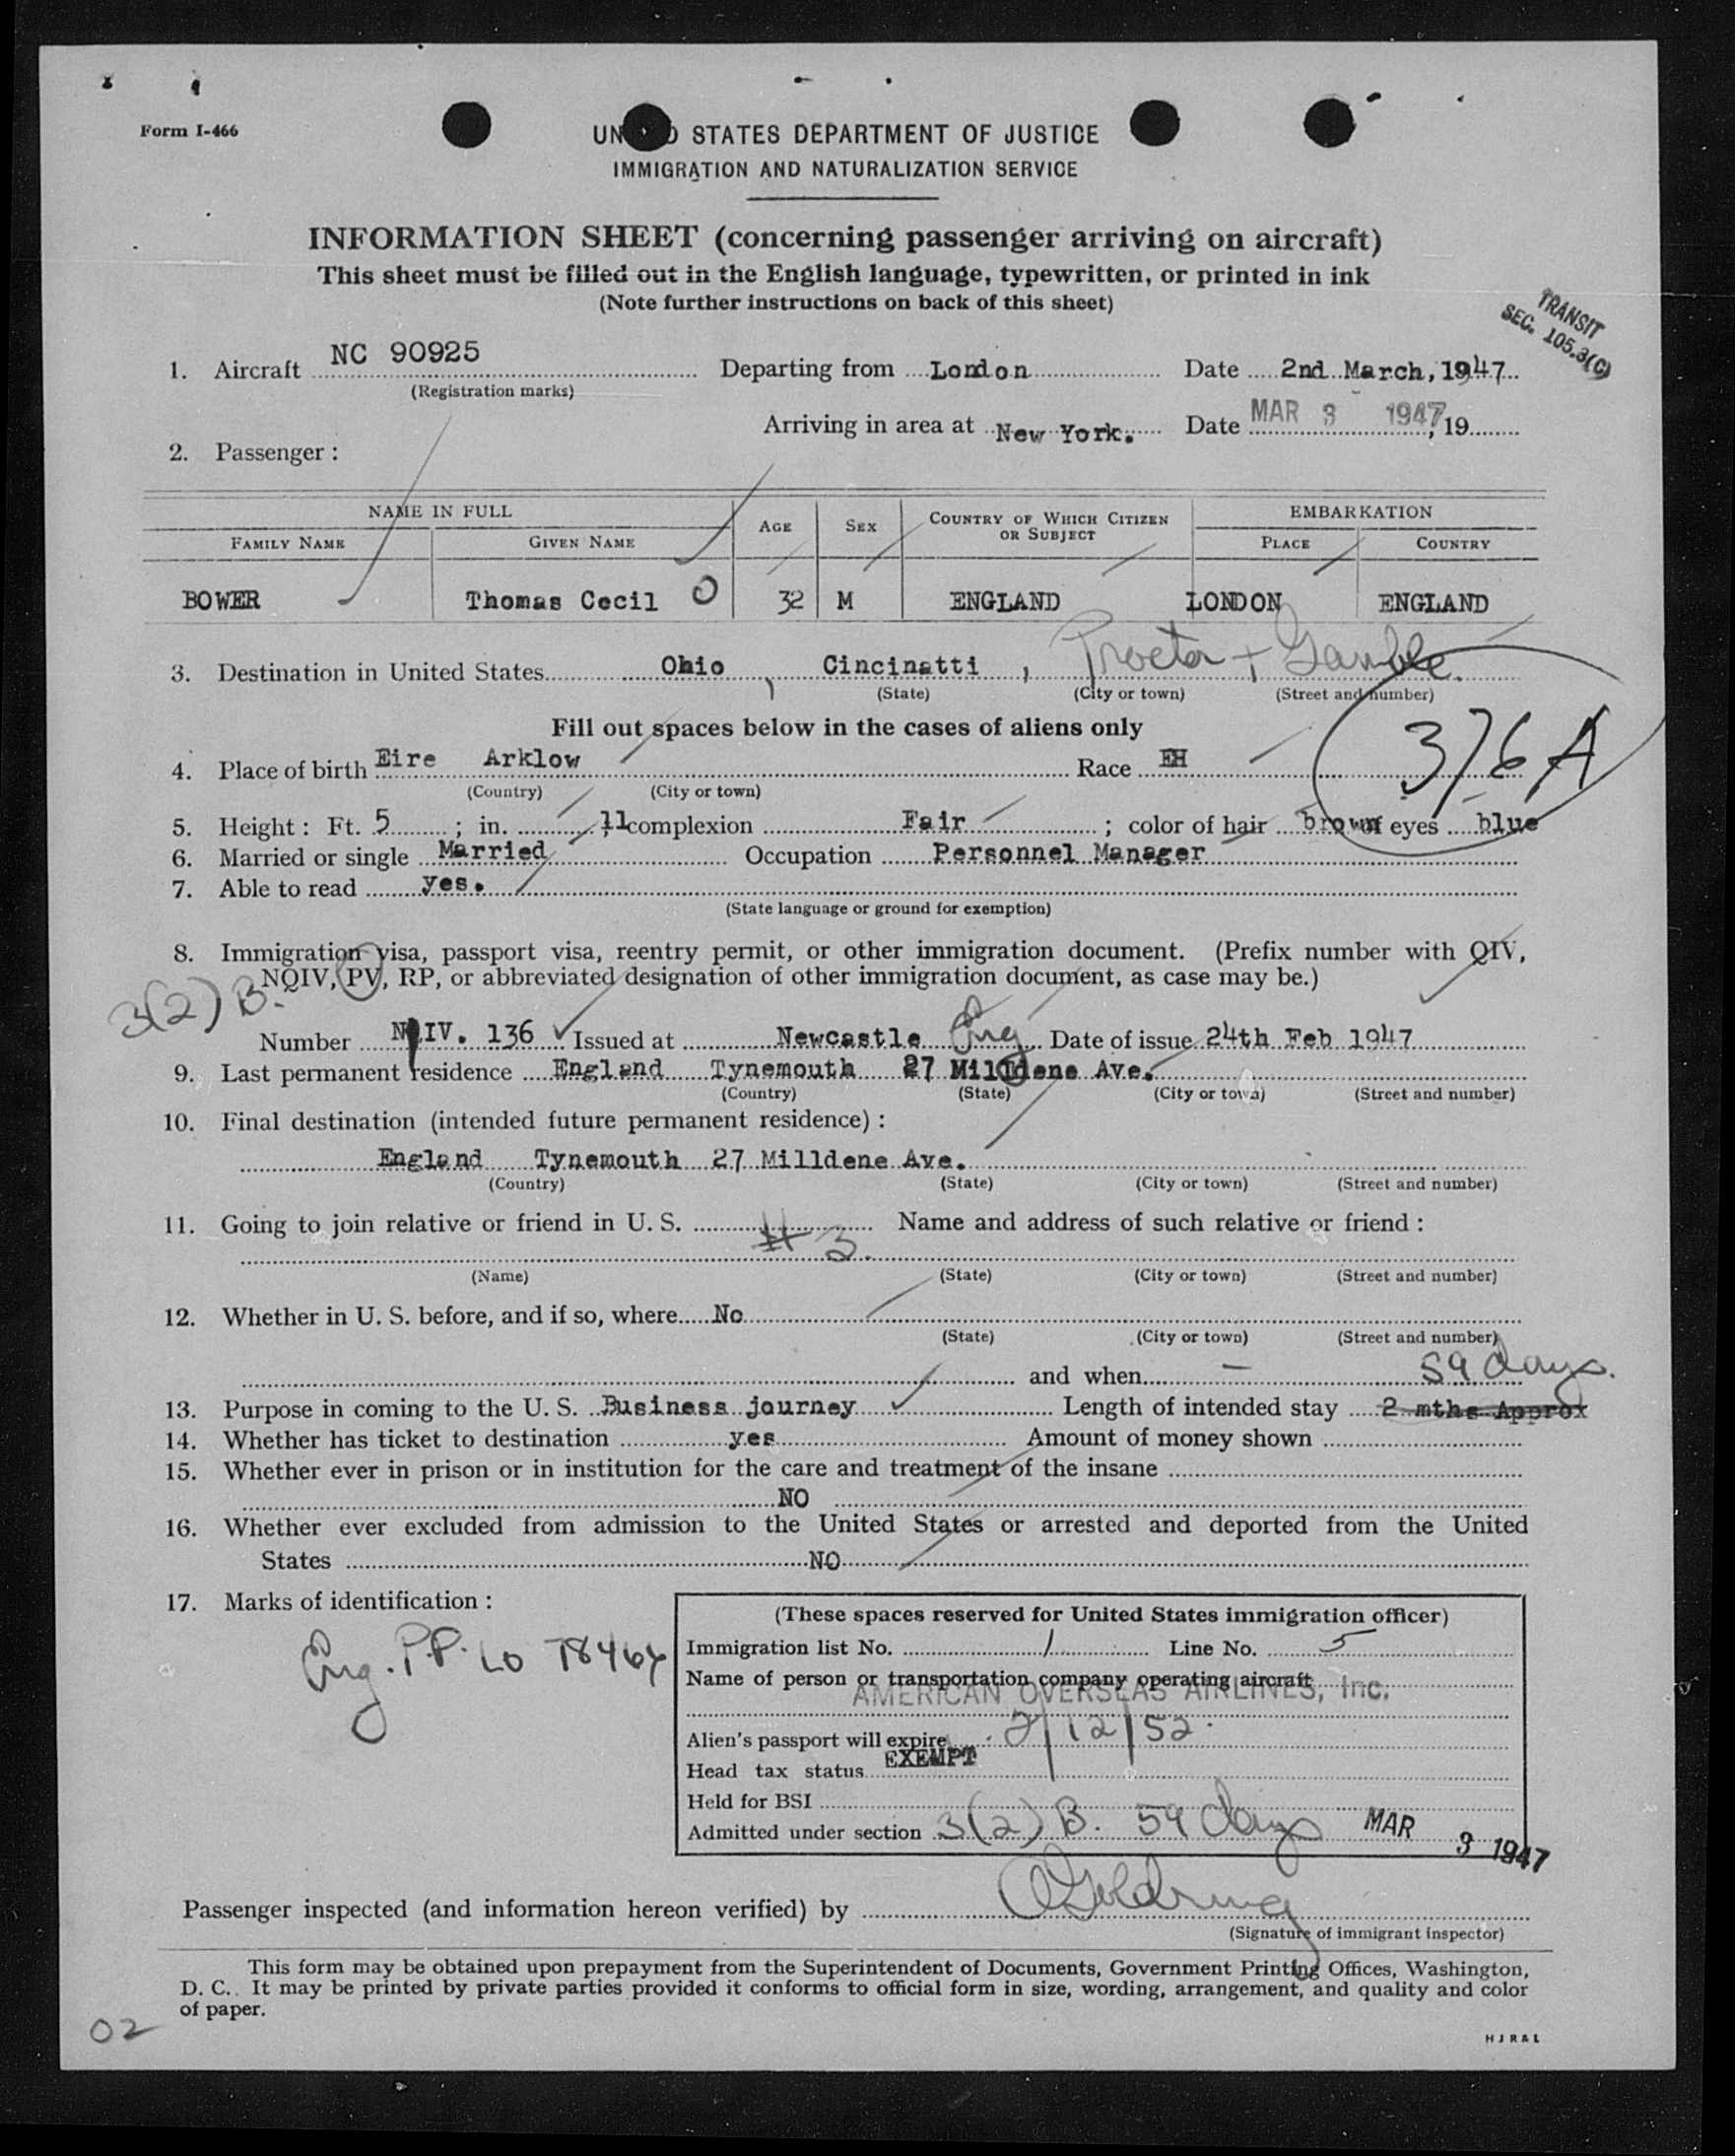 Form I-466
UN D STATES DEPARTMENT OF JUSTICE
IMMIGRATION AND NATURALIZATION SERVICE
INFORMATION SHEET (concerning passenger arriving on aircraft)
This sheet must be filled out in the English language, typewritten, or printed in ink
(Note further instructions on back of this sheet)
TRANSIT
SEC. 105.3(C)
1. Aircraft NC 90925 Departing from London Date 2nd March, 1947
(Registration marks)
Arriving in area at New York. Date MAR 3 1947, 19
2. Passenger :
NAME IN FULL AGE SEX COUNTRY OF WHICH CITIZEN OR SUBJECT EMBARKATION
FAMILY NAME GIVEN NAME PLACE COUNTRY
BOWER Thomas Cecil O 32 M ENGLAND LONDON ENGLAND
3. Destination in United States Ohio , Cincinatti , Procter + Gamble.
(State) (City or town) (Street and number)
Fill out spaces below in the cases of aliens only
376 A
4. Place of birth Eire Arklow Race EH
(Country) (City or town)
5. Height : Ft. 5 ; in. 11 complexion Fair ; color of hair brown of eyes blue
6. Married or single Married Occupation Personnel Manager
7. Able to read yes.
(State language or ground for exemption)
8. Immigration visa, passport visa, reentry permit, or other immigration document. (Prefix number with QIV,
NQIV, PV, RP, or abbreviated designation of other immigration document, as case may be.)
3(2) B.
Number NQIV. 136 Issued at Newcastle Eng Date of issue 24th Feb 1947
9. Last permanent residence England Tynemouth 27 Milldene Ave.
(Country) (State) (City or town) (Street and number)
10. Final destination (intended future permanent residence) :
England Tynemouth 27 Milldene Ave.
(Country) (State) (City or town) (Street and number)
11. Going to join relative or friend in U. S. Name and address of such relative or friend :
# 3.
(Name) (State) (City or town) (Street and number)
12. Whether in U. S. before, and if so, where No
(State) (City or town) (Street and number)
and when — 59 days.
13. Purpose in coming to the U. S. Business journey Length of intended stay 2 mths Approx
14. Whether has ticket to destination yes Amount of money shown
15. Whether ever in prison or in institution for the care and treatment of the insane
NO
16. Whether ever excluded from admission to the United States or arrested and deported from the United
States NO
17. Marks of identification :
Eng. P.P. LO T8464
(These spaces reserved for United States immigration officer)
Immigration list No. 1 Line No. 5
Name of person or transportation company operating aircraft
AMERICAN OVERSEAS AIRLINES, Inc.
Alien's passport will expire 2/12/52.
Head tax status EXEMPT
Held for BSI
Admitted under section 3(2) B. 59 days MAR 3 1947
Passenger inspected (and information hereon verified) by
(Signature of immigrant inspector)
This form may be obtained upon prepayment from the Superintendent of Documents, Government Printing Offices, Washington,
D. C. It may be printed by private parties provided it conforms to official form in size, wording, arrangement, and quality and color
of paper.
02
HJR&L